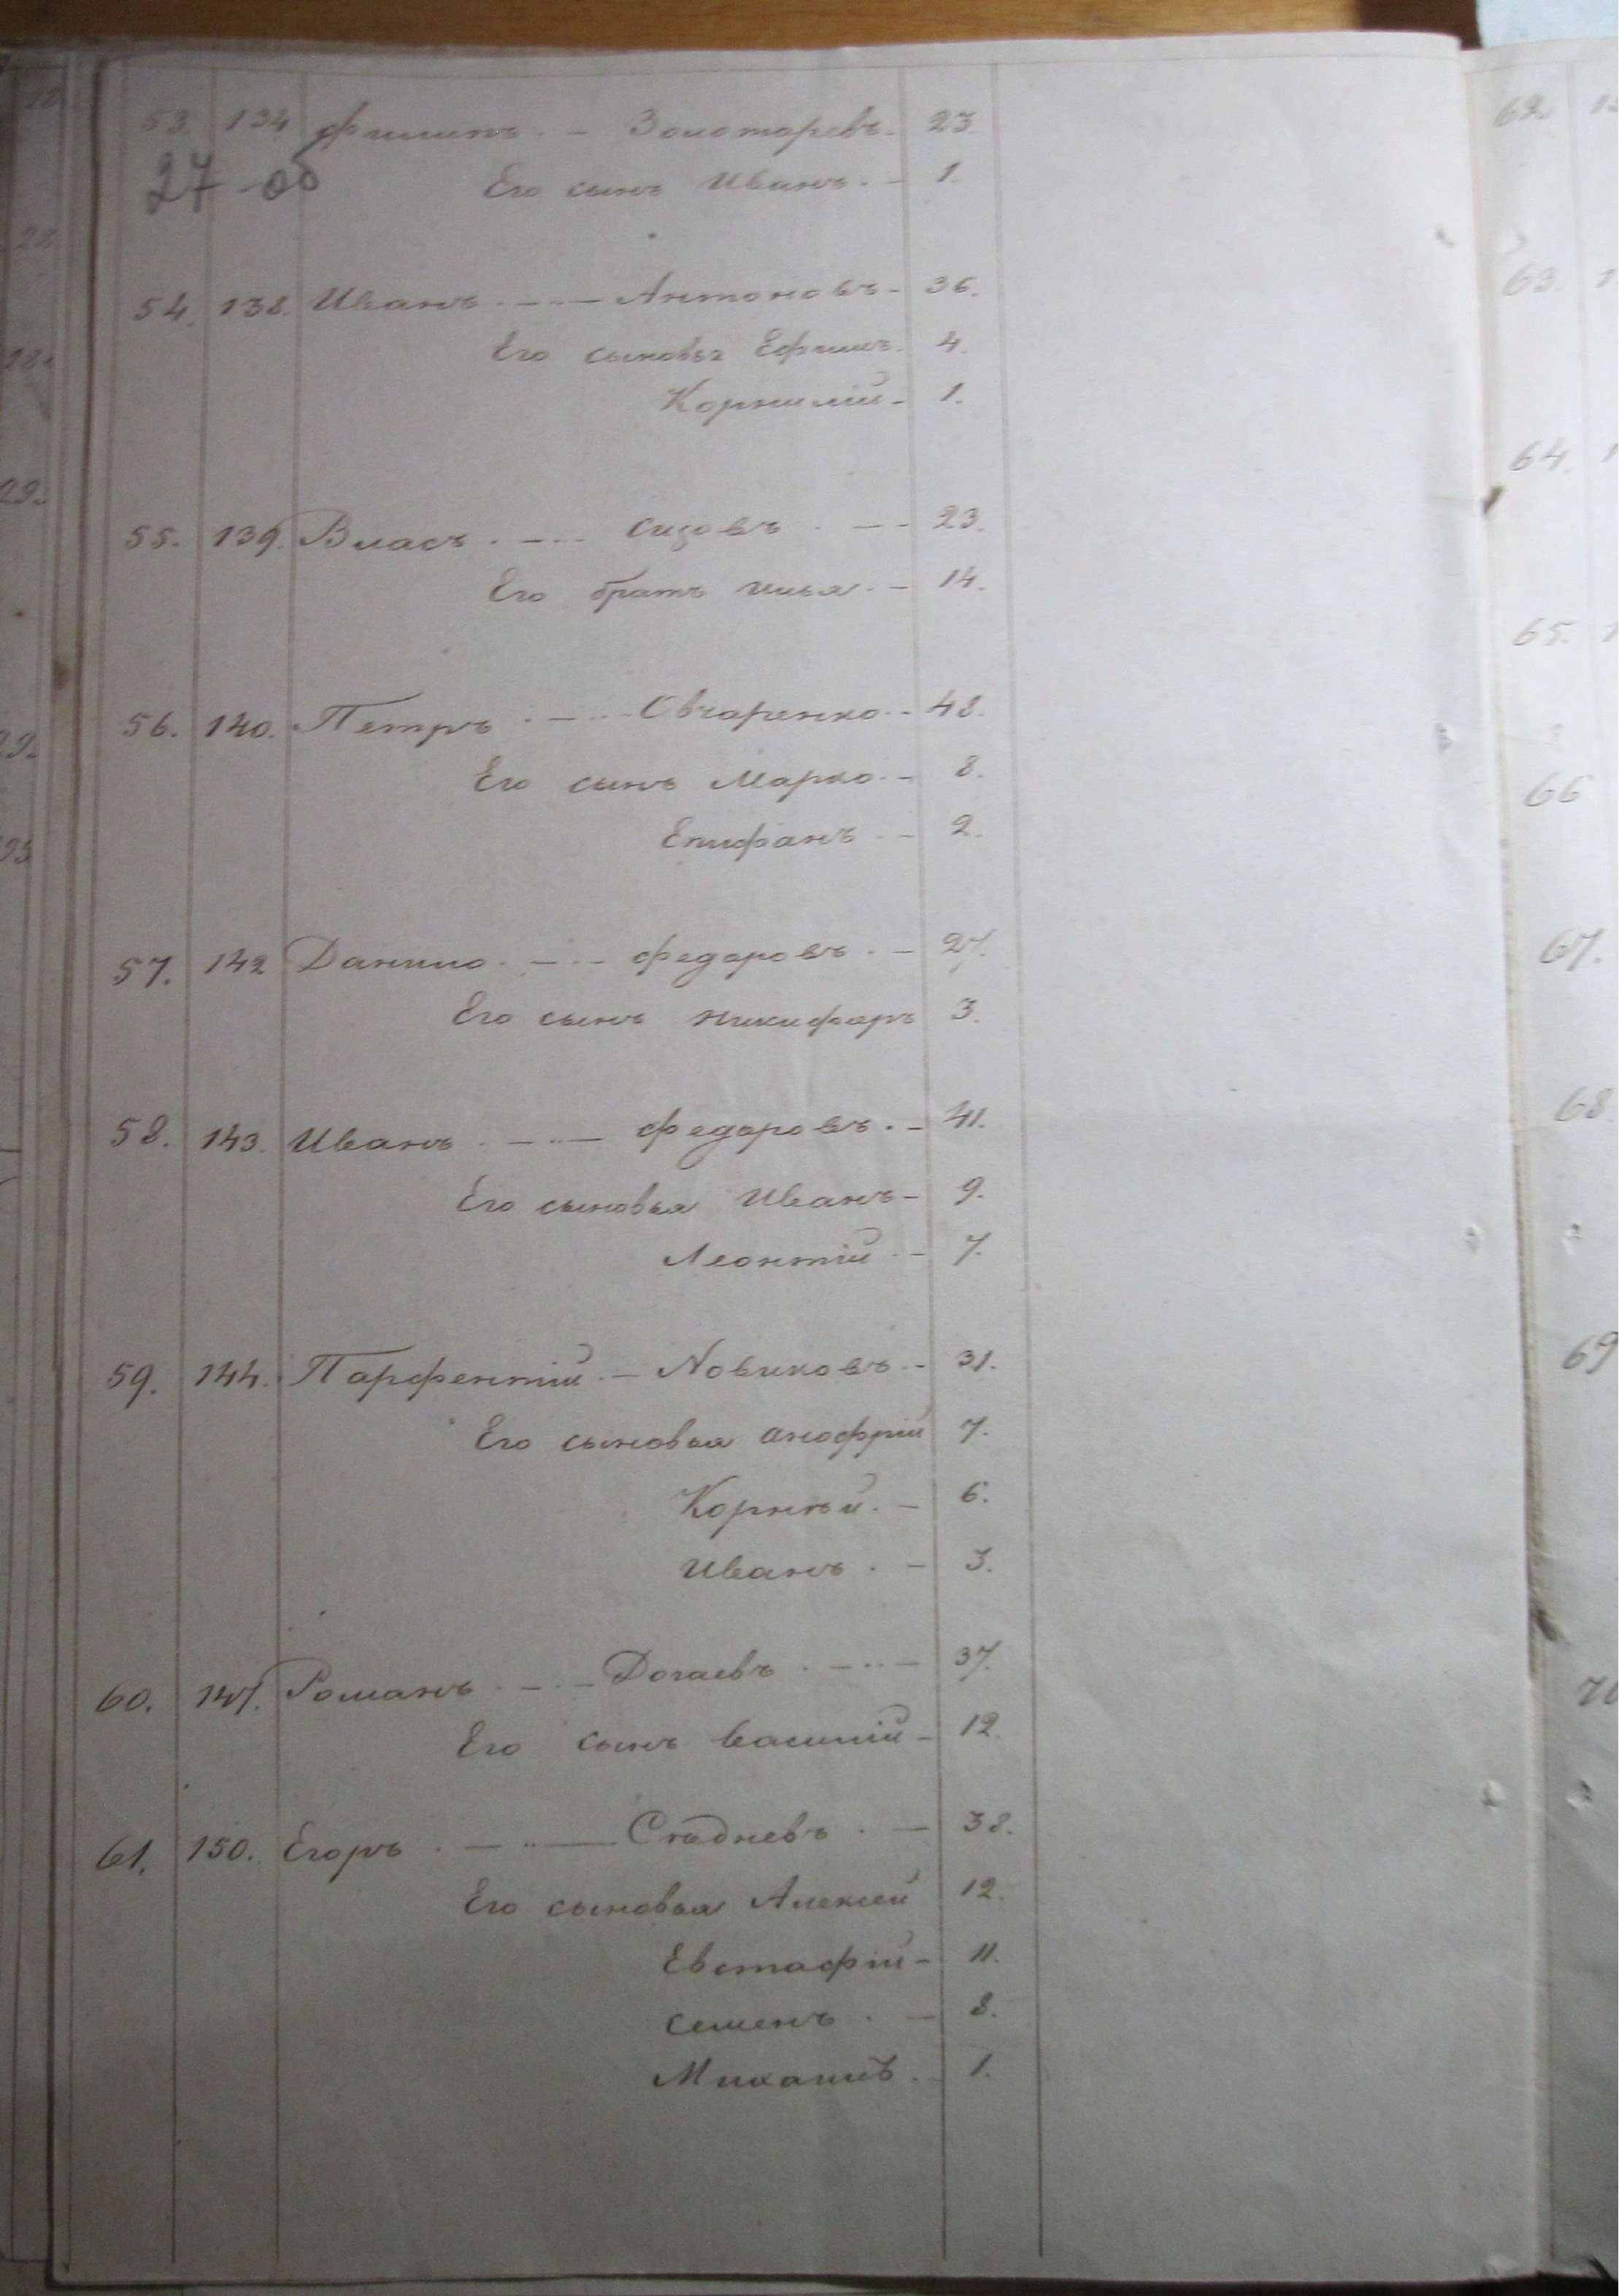 53. 134 Филипъ . – Золотаревъ – 23.
27-об
Его сынъ Иванъ . – 1.
54. 138. Иванъ . – ·· – Антоновъ – 36.
Его сыновья Ефимъ . 4.
Корнилій – 1.
55. 139. Власъ . – ·· Сизовъ . – – 23.
Его братъ Илья . – 14.
56. 140. Петръ . – ·· – Овчаренко . – 48.
Его сынъ Марко . – 8.
Епифанъ . – 2.
57. 142 Данило . – · – Федоровъ . – 27.
Его сынъ Никифоръ 3.
58. 143. Иванъ . – ·· – Федоровъ . – 41.
Его сыновья Иванъ – 9.
Леонтій . – 7.
59. 144. Парфентій . – Новиковъ . – 31.
Его сыновья Анофрій 7.
Корнѣй . – 6.
Иванъ . – 3.
60. 147. Романъ . – · – Догаевъ . – ·· – 37.
Его сынъ Василій – 12.
61. 150. Егоръ . – ·· – Стадневъ . – 38.
Его сыновья Алексей 12.
Евстафій – 11.
Семенъ . – 8.
Михаилъ . 1.
62.
63.
64.
65.
66
67.
68.
69